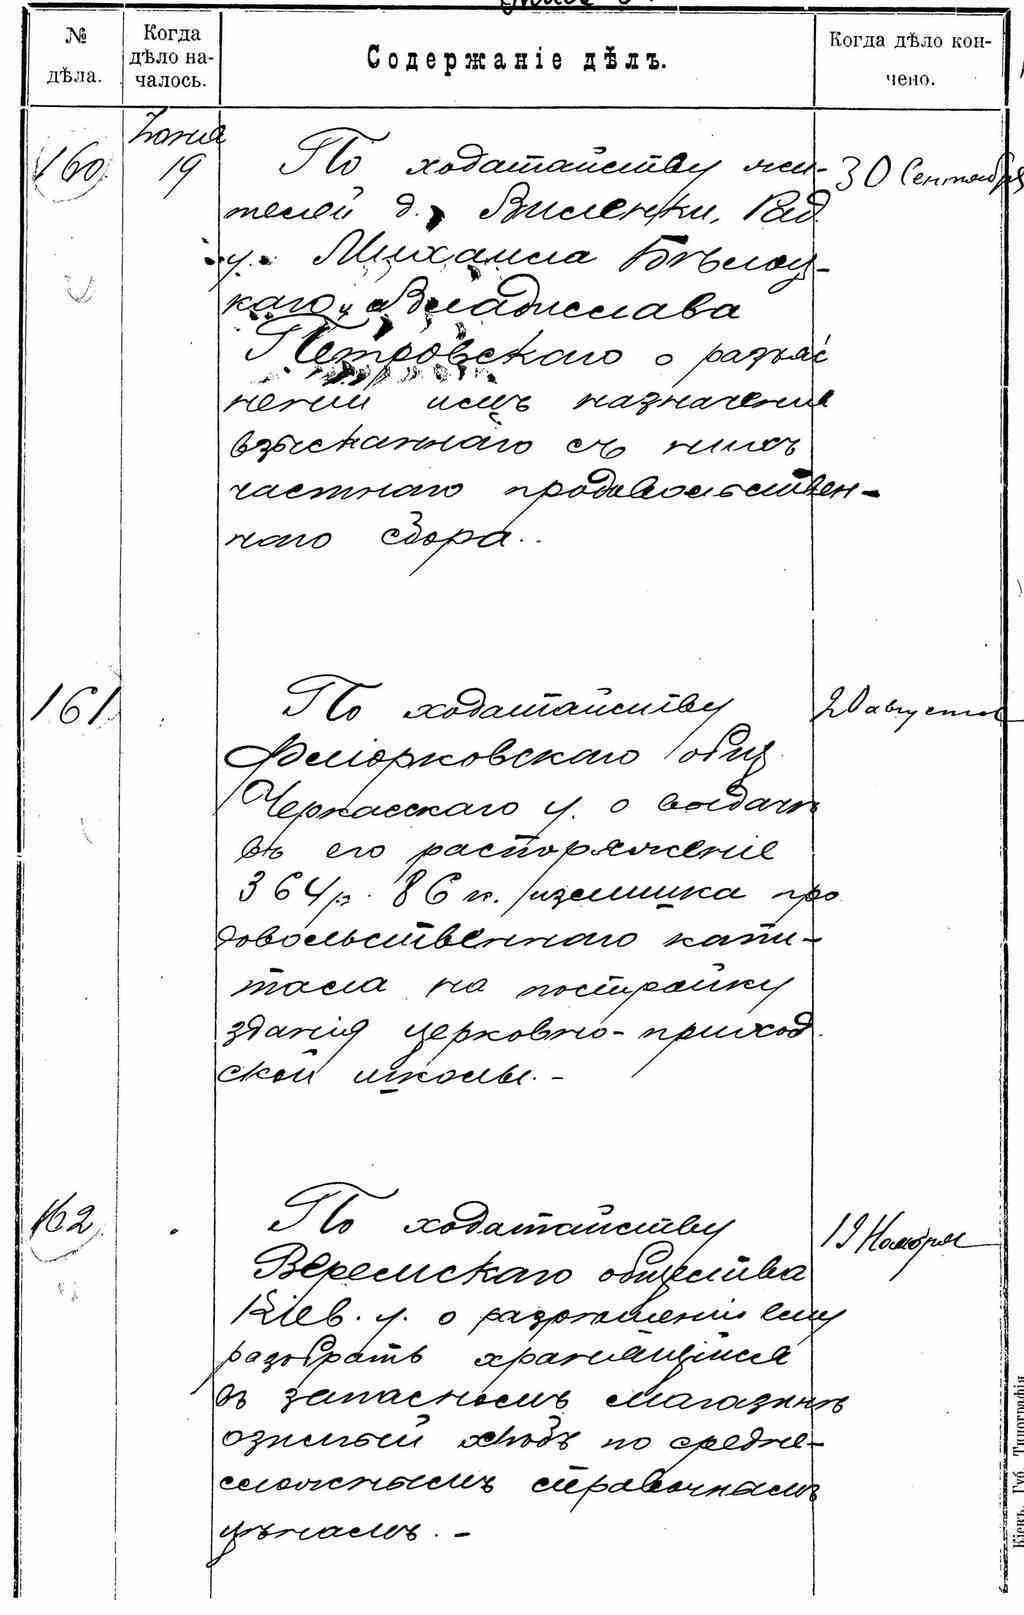 № дѣла.
Когда дѣло началось.
Содержаніе дѣлъ.
Когда дѣло кончено.
Іюня
160
19
По ходатайству жи-
телей д. Виленки, Рад.
у. Михаила Бѣлоц-
каго и Владислава
Петровскаго о разъяс
неніи имъ назначенія
взысканнаго съ нихъ
частнаго продовольствен-
наго сбора.
30 Сентября
161
По ходатайству
Фліорковскаго общ.
Черкасскаго у. о выдачѣ
въ его распоряженіе
364 р. 86 к. излишка про
довольственнаго капи-
тала на постройку
зданія церковно-приход
ской школы. -
20 августа
162
По ходатайству
Веремскаго общества
Кіев. у. о разрѣшеніи ему
разобрать хранящійся
въ запасномъ магазинѣ
озимый хлѣбъ по средне-
сложнымъ справочнымъ
цѣнамъ. -
19 Ноября
Кіевъ. Губ. Типографія